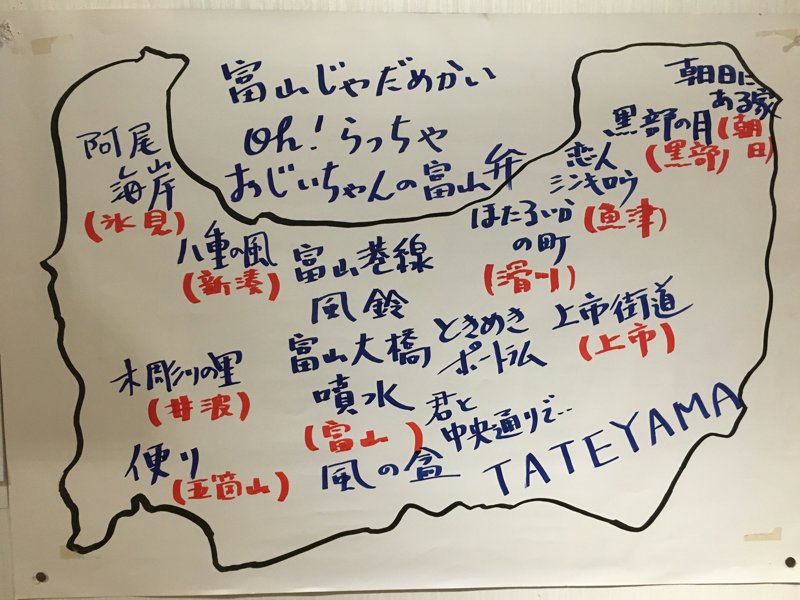 富山じゃだめかい
Oh!らっちゃ
おじいちゃんの富山弁
朝日に
ある家
(朝日)
黒部の月
(黒部)
恋人
シンキロウ
(魚津)
ほたるいか
の町
(滑川)
阿尾
海岸
(氷見)
八重の風
(新湊)
富山港線
風鈴
富山大橋
噴水
(富山)
ときめき
ポートラム
上市街道
(上市)
木彫りの里
(井波)
君と
中央通りで‥
便り
(五箇山)
風の盆
TATEYAMA